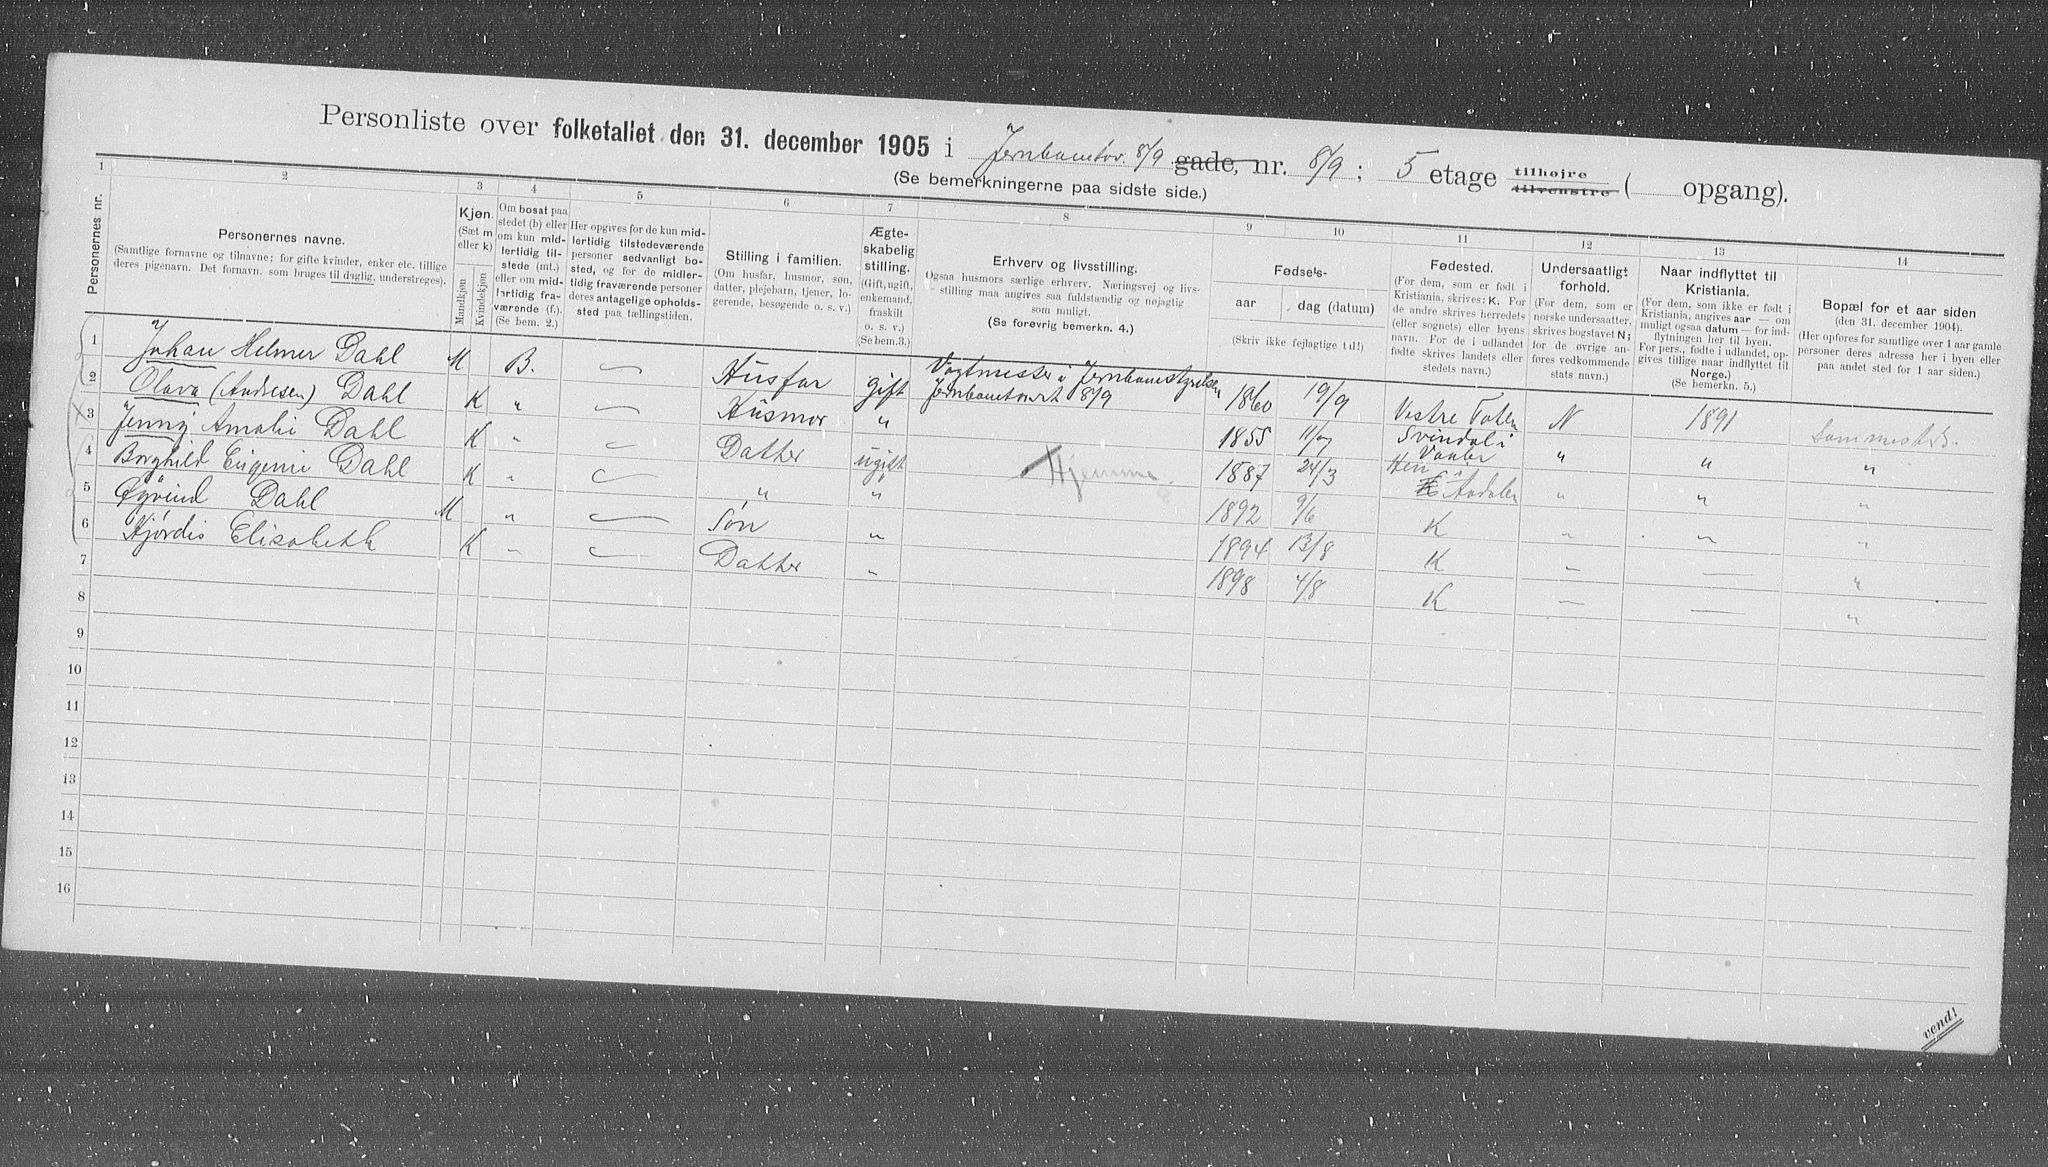 Personliste over folketallet den 31. december 1905 i Jernbanetov. 8/9 gade, nr. 8/9 ; 5 etage tilhøjre tilvenstre ( opgang).
(Se bemerkningerne paa sidste side.)
1 2 3 4 5 6 7 8 9 10 11 12 13 14
Personernes nr.
Personernes navne.
(Samtlige fornavne og tilnavne; for gifte kvinder, enker etc. tillige
deres pigenavn. Det fornavn. som bruges til daglig, understreges).
Kjøn.
(Sæt m
eller k)
Mandkjøn
Kvindekjøn
Om bosat paa
stedet (b) eller
om kun mid-
lertidig til-
stede (mt.)
eller om mid-
lertidig fra-
værende (f.).
(Se bem. 2.)
Her opgives for de kun mid-
lertidig tilstedeværende
personer sedvanligt bo-
sted, og for de midler-
tidig fraværende personer
deres antagelige opholds-
sted paa tællingstiden.
Stilling i familien.
(Om husfar, husmor, søn,
datter, plejebarn, tjener, lo-
gerende, besøgende o. s. v.)
Ægte-
skabelig
stilling.
(Gift, ugift,
enkemand,
fraskilt
o. s. v.)
(Se bem.3.)
Erhverv og livsstilling.
Ogsaa husmors særlige erhverv. Næringsvej og livs-
stilling maa angives saa fuldstændig og nøjagtig
som muligt.
(Se forøvrig bemerkn. 4.)
Fødsels-
aar dag (datum)
(Skriv ikke fejlagtige tal!)
Fødested.
(For dem, som er født i
Kristiania, skrives: K. For
de andre skrives herredets
(eller sognets) eller byens
navn. For de i udlandet
fødte skrives landets eller
stedets navn.)
Undersaatligt
forhold.
(For dem, som er
norske undersaatter,
skrives bogstavet N;
for de øvrige an-
føres vedkommende
stats navn.)
Naar indflyttet til
Kristiania.
(For dem, som ikke er født i
Kristiania, angives aar — om
muligt ogsaa datum — for ind-
flytningen her til byen.
For pers., fødte i udlandet, op-
gives tillige naar indflyttet til
Norge.)
(Se bemerkn. 5.)
Bopæl for et aar siden
(den 31. december 1904).
(Her opføres for samtlige over 1 aar gamle
personer deres adresse her i byen eller
paa andet sted for 1 aar siden.)
1 Johan Helmer Dahl M B. Husfar gift Vogtmester i Jernbanestyrelsen Jernbanetorvt 8/9 1860 19/9 Vestre Toten N 1891 Sammesteds.
2 Olava (Andresen) Dahl K " Husmor " 1855 11/7 Svindal i Vaaler " " "
3 Jenny Amalie Dahl K " Datter ugift Hjemme. 1887 24/3 Hen i Aadalen " " "
4 Borghild Eugenie Dahl K " " " 1892 9/6 K " " "
5 Øyvind Dahl M " Søn " 1894 13/8 K " — "
6 Hjørdis Elisabeth K " Datter " 1898 4/8 K — — "
7
8
9
10
11
12
13
14
15
16
vend!